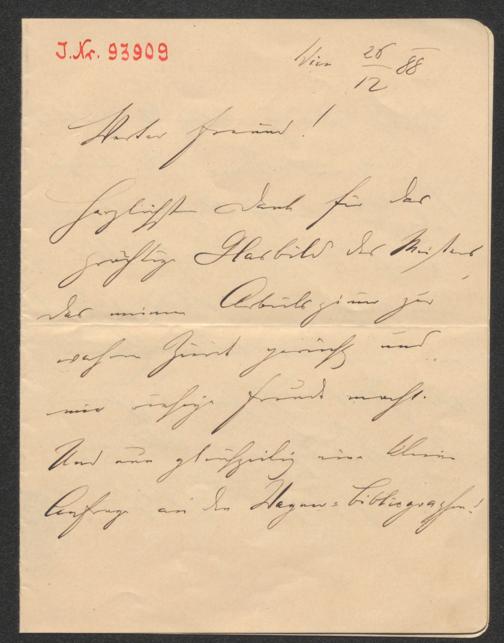 J.Nr. 93909
Wien 26/12 88
Werter Freund!
Herzlichsten Dank für das
prächtige Glasbild des Meisters,
das meinem Arbeitszimmer zur
wahren Zierde gereicht und
mir riesige Freude macht.
Und nun gleichzeitig eine kleine
Anfrage an den Wagner=Bibliographen!